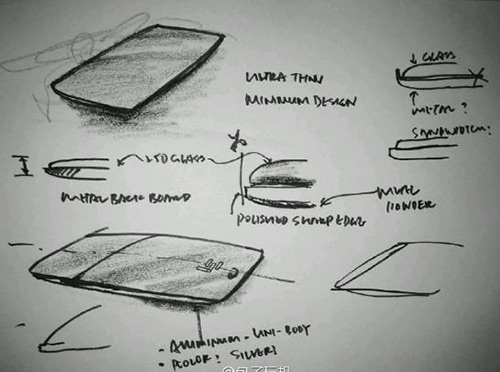 ULTRA THIN
MINIMUM DESIGN
GLASS
METAL?
SANDWITCH?
LCD GLASS
METAL BACK BOARD
POLISHED SHARP EDGE
METAL
POWDER
- ALUMINUM - UNI-BODY
- COLOR? SILVER?